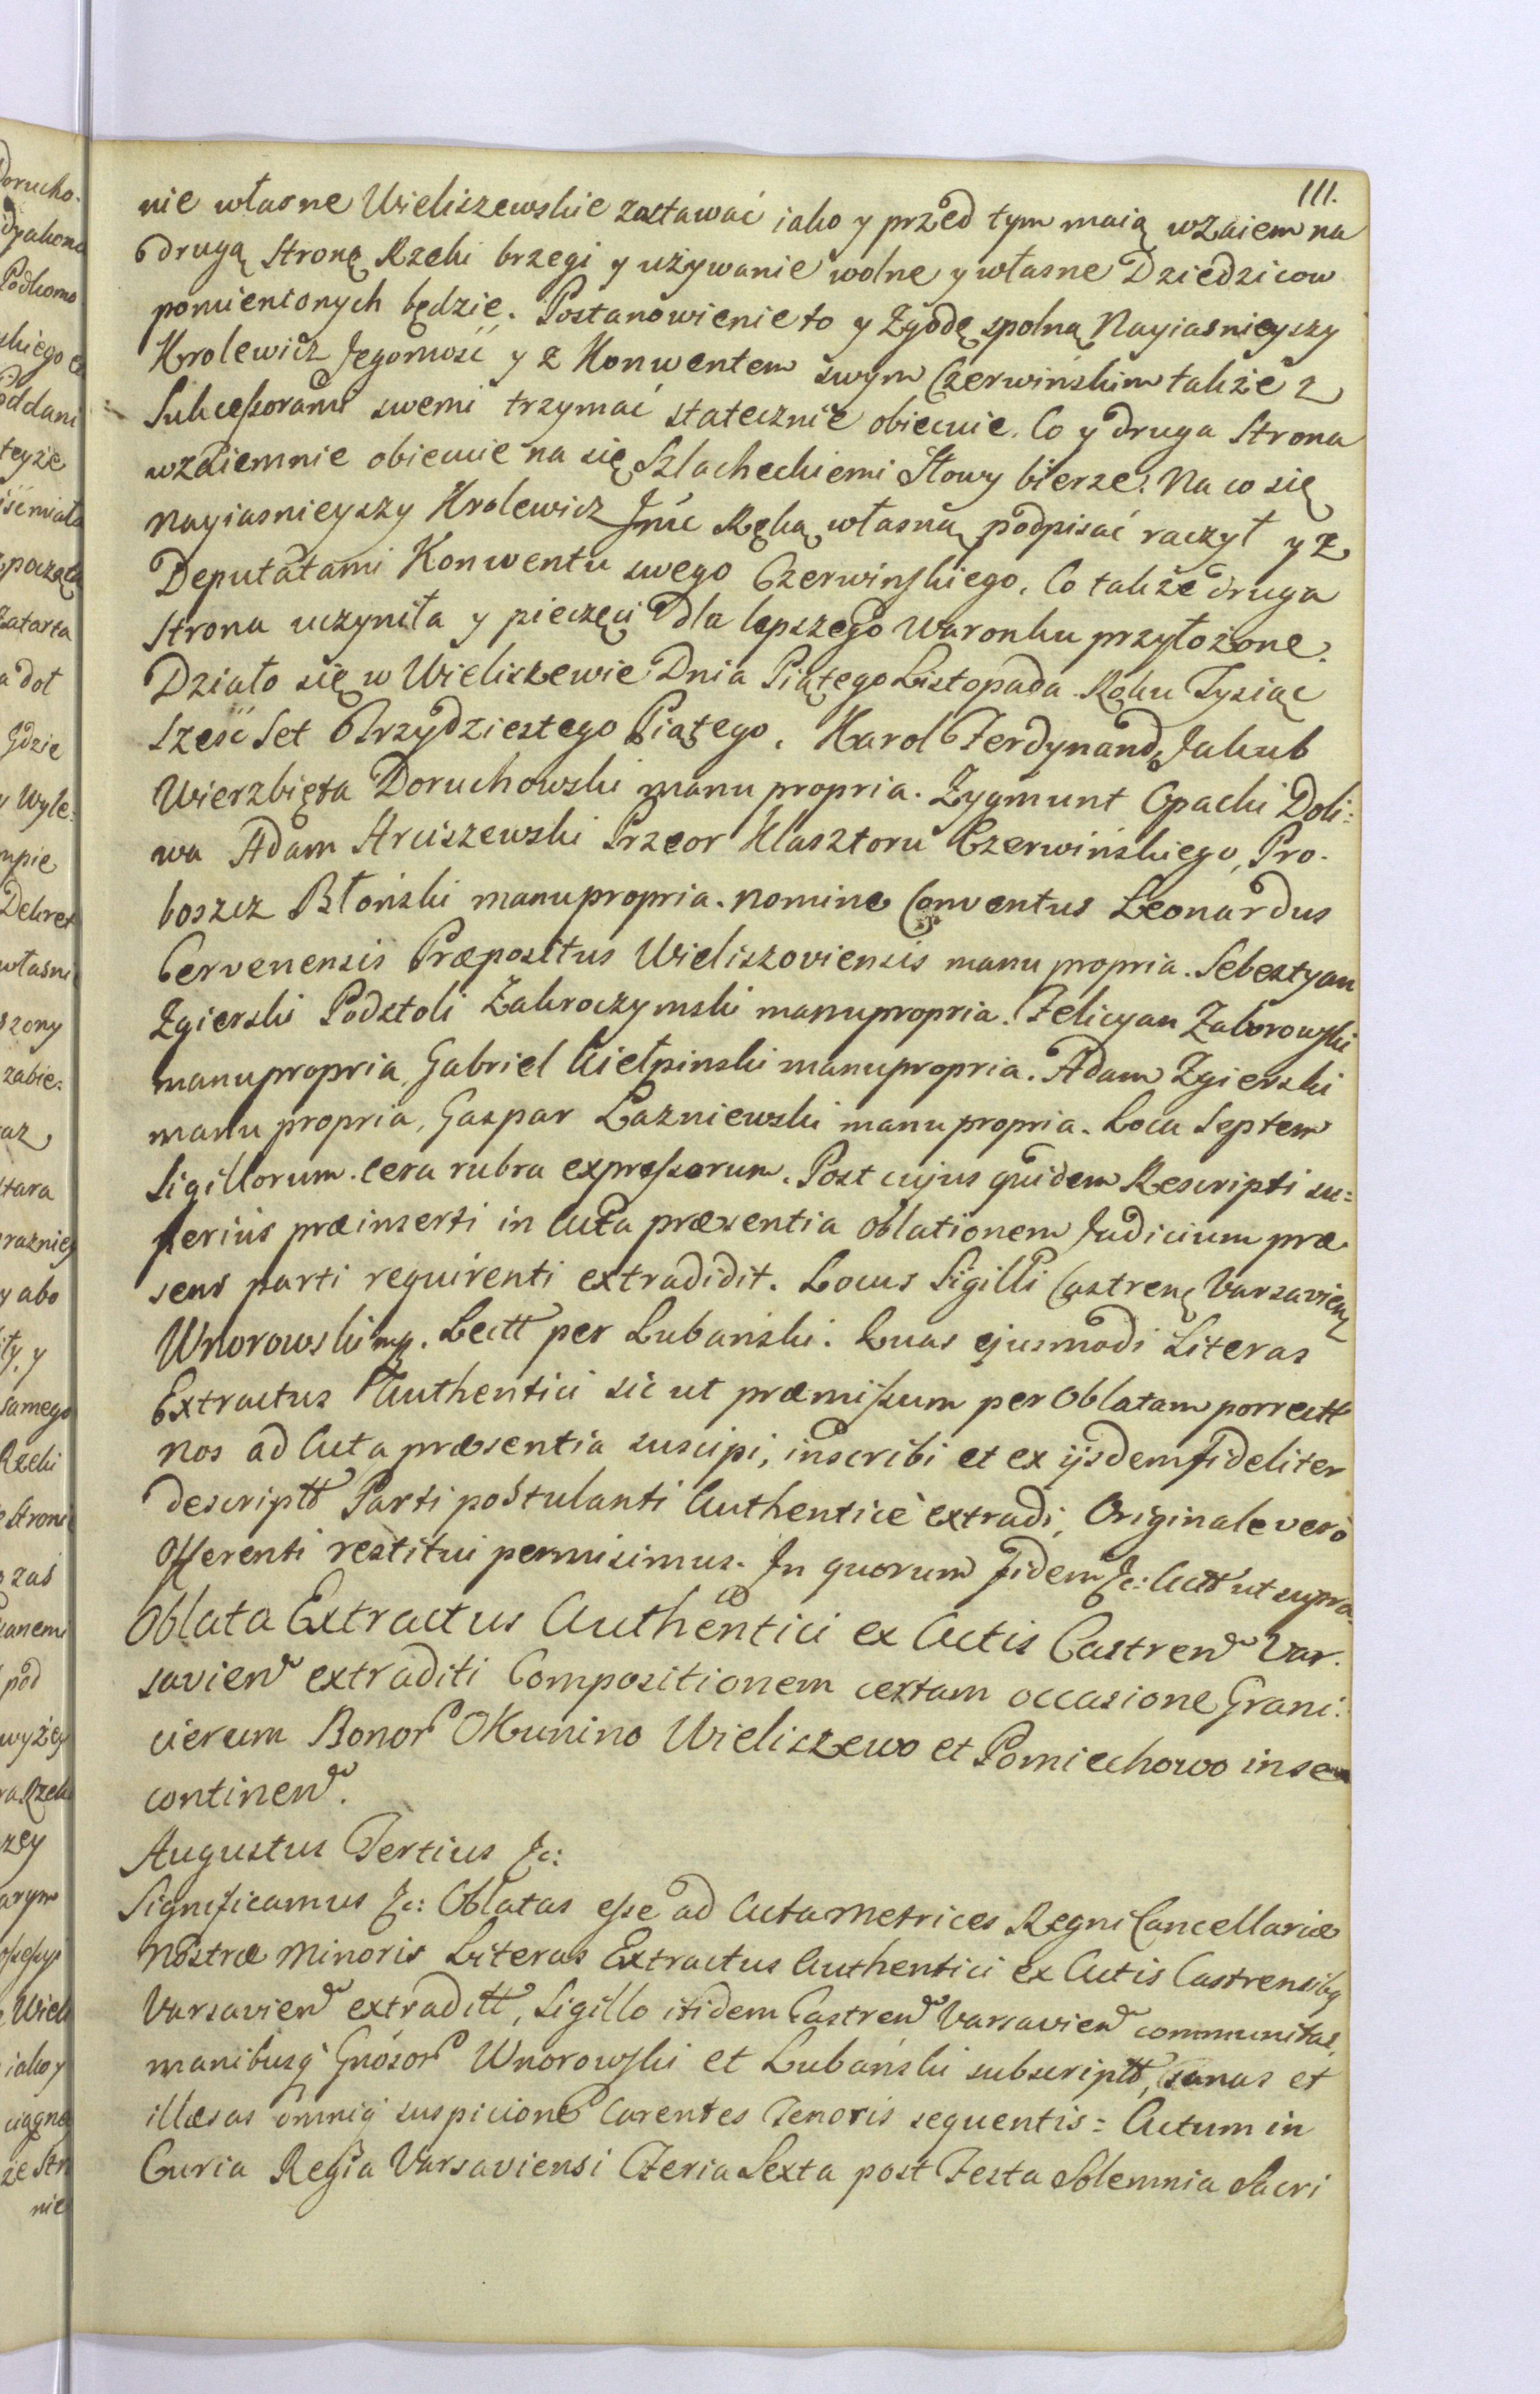 111.
nie własne Wieliszewskie zostawać iako y przed tym maią wzaiem na
drugą Stronę Rzeki brzegi y używanie wolne y własne Dziedzicow
pomienionych będzie. Postanowienie to y Zgodę spolną Nayiasnieyszy
Krolewicz Jegomość y z Konwentem swym Czerwińskim także z
Sukceſsorami swemi trzymać statecznie obiecuie. Co y druga Strona
wzaiemnie obiecuie na się Szlacheckiemi Słowy bierze. Na co się
Nayiasnieyszy Krolewicz Jmć Ręką własną podpisać raczył y z
Deputatami Konwentu swego Czerwinſkiego. Co także druga
Strona uczyniła y pieczęci dla lepszego Warunku przyłożone.
Działo się w Wieliszewie Dnia Piątego Listopada Roku Tysiąc
Sześć Set Trzydziestego Piątego. Karol Ferdynand, Jakub
Wierzbięta Doruchowski manu propria. Zygmunt Opacki Doli:
wa Adam Arciszewski Przeor Klasztoru Czerwińskiego, Pro-
boszcz Błoński manu propria. nomine Conventus Leonardus
Cervenensis Præpositus Wieliszoviensis manu propria. Sebestyan
Zgierski Podstoli Zakroczymski manu propria. Felicyan Zaborowſki
manu propria, Gabriel Cielpinski manu propria. Adam Zgierski
manu propria, Gaspar Lazniewski manu propria. Loca Septem
Sigillorum cera rubra expreſsorum. Post cujus quidem Rescripti su=
perius præinserti in Acta præsentia oblationem Judicium præ
sens parti requirenti extradidit. Locus Sigilli Castren Varsavien
Wnorowski mp. Lectt per Lubański. Quas ejusmodi Literas
Extractus Authentici sic ut præmiſsum per Oblatam porrectt
nos ad Acta præsentia suscipi, inscribi et ex ijsdem fideliter
descriptt Parti postulanti Authenticè extradi, Originale verò
Offerenti restitui permisimus. In quorum fidem &c: Actt ut supra.
Oblata Extractus Authentici ex Actis Castren Var.
savien extraditi Compositionem certam occasione Grani:
cierum Bonor Okunino Wieliszewo et Pomiechowo in se
continen.
Augustus Tertius &c:
Significamus &c: Oblatas eſse ad Acta Metrices Regni Cancellariæ
Nostræ Minoris Literas Extractus Authentici ex Actis Castrensibq
Varsavien extraditt, Sigillo itidem Castren Varsavien communitas,
manibusq Gnősor Wnorowſki et Lubański subscriptt, sanas et
illæsas omniq suspicione carentes Tenoris sequentis = Actum in
Curia Regia Varsaviensi Feria Sexta post Festa Solemnia Sacri